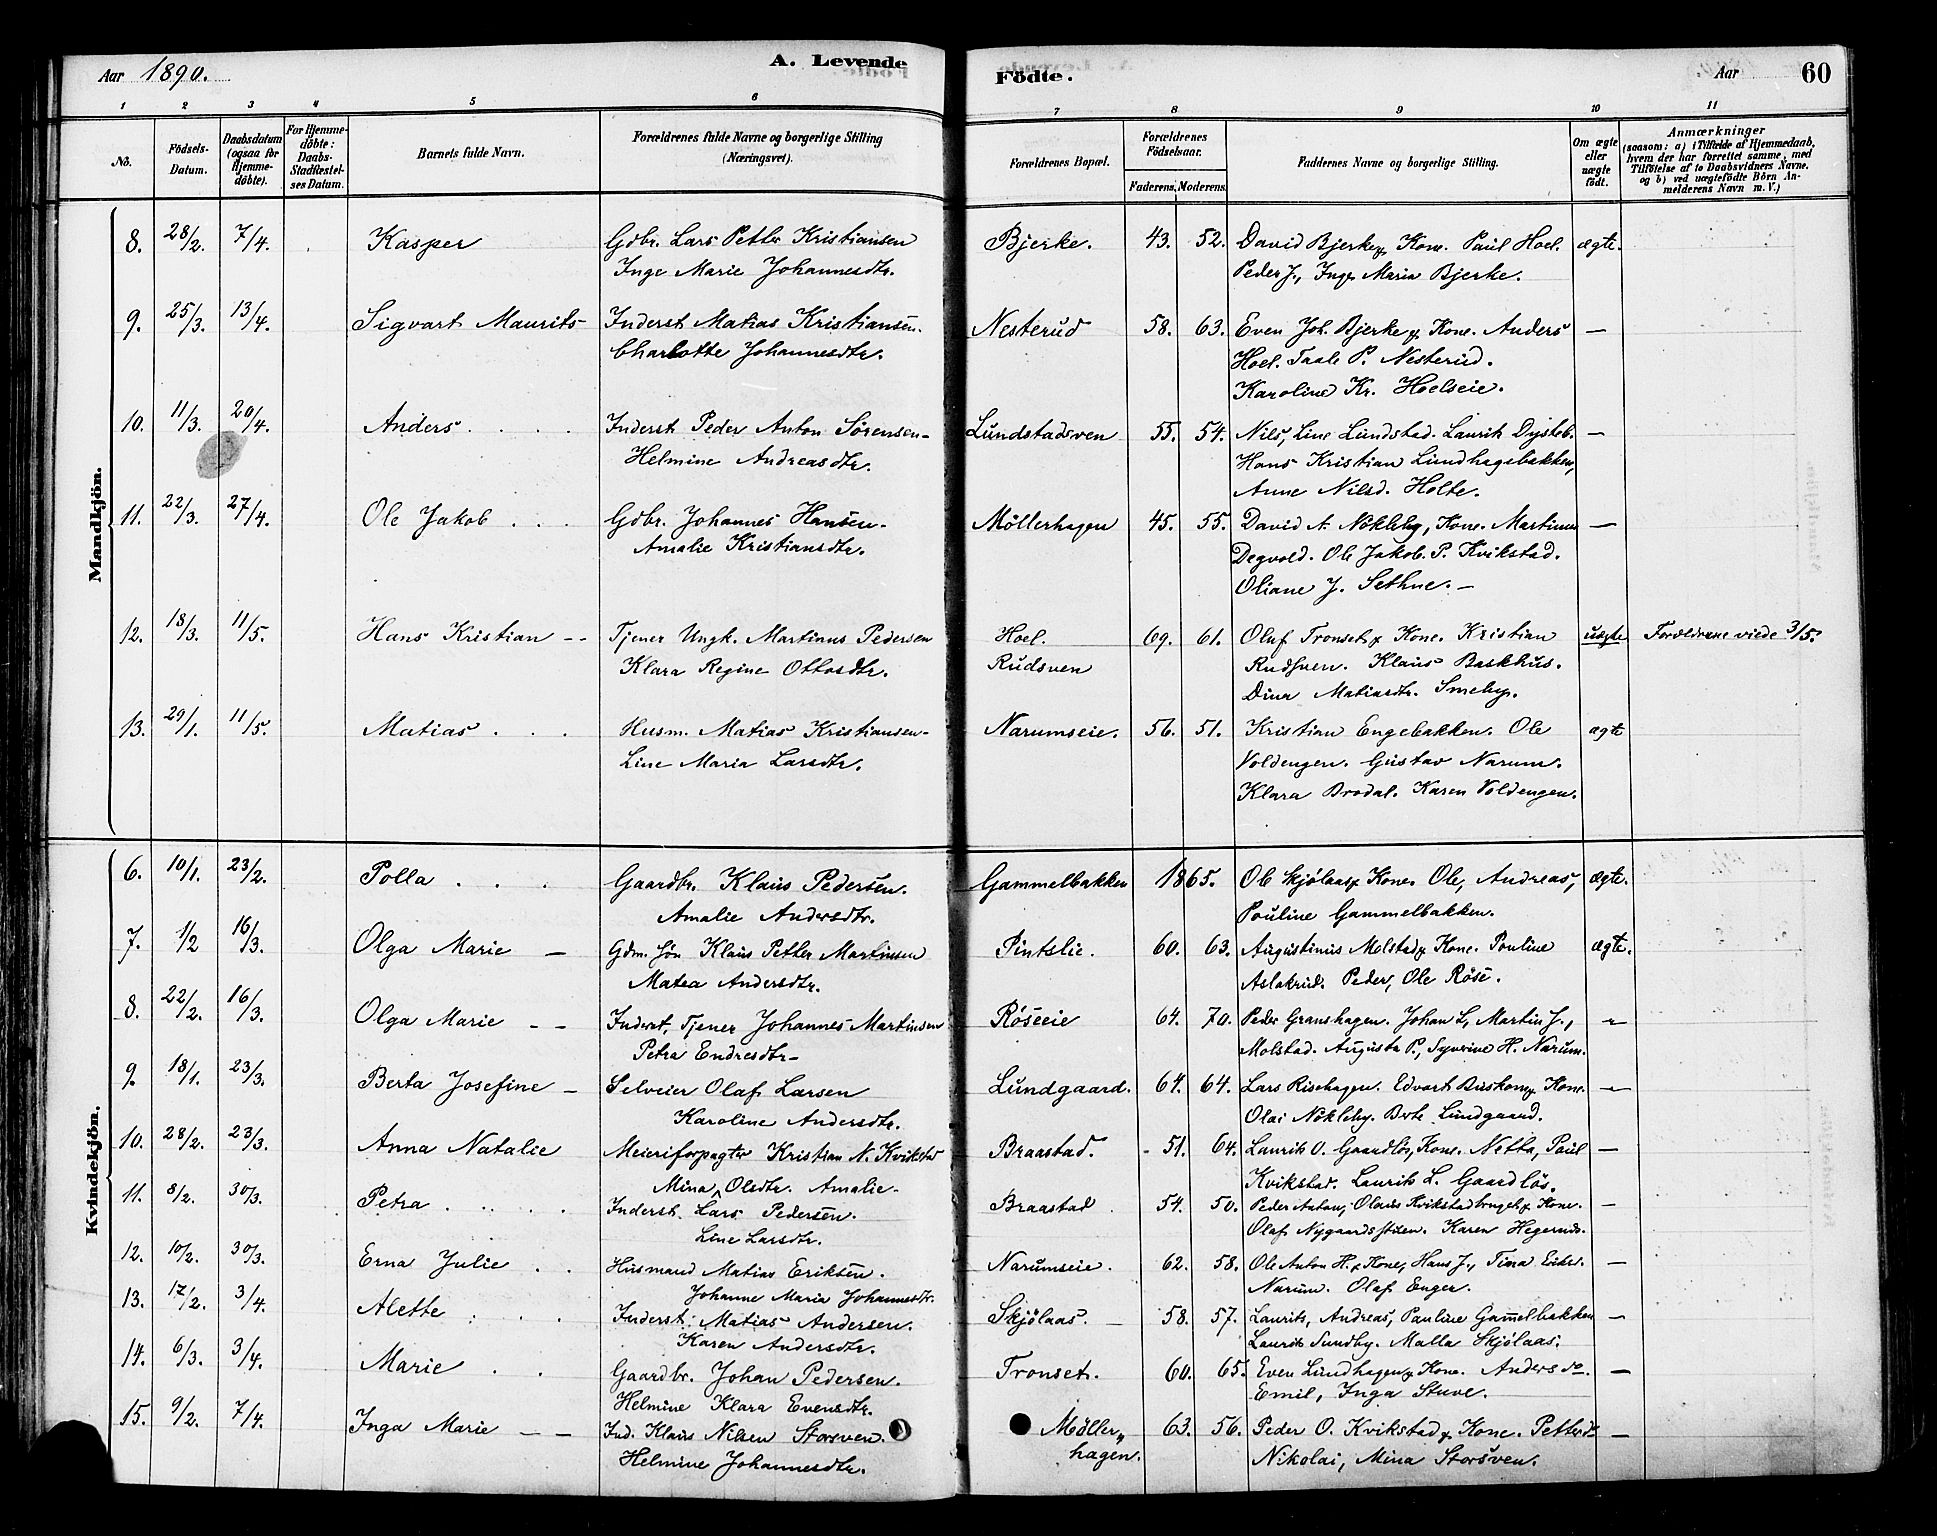 Aar 1890.
A. Levende
Födte.
Aar
60
1 2 3 4 5 6 7 8 9 10 11
No.
Födsels-
Datum.
Daabsdatum
(ogsaa for
Hjemme-
döbte).
For Hjemme-
döbte:
Daabs-
Stadfæstel-
ses Datum.
Barnets fulde Navn.
Forældrenes fulde Navne og borgerlige Stilling
(Næringsvei).
Forældrenes Bopæl.
Forældrenes
Födselsaar.
Faderens. Moderens.
Faddernes Navne og borgerlige Stilling.
Om ægte
eller
uægte
født.
Anmærkninger
(saasom: a) i Tilfælde af Hjemmedaab,
hvem der har forrettet samme, med
Tilföielse af to Daabsvidners Navne,
og b) ved uægtefödte Börn An-
melderens Navn m. V.)
Mandkjön.
8. 28/2. 7/4. Kasper Gdbr. Lars Petter Kristiansen Bjerke. 43. 52. David Bjerke & Kone. Paul Hoel. ægte.
Inge Marie Johannesdtr. Peder J., Inge Maria Bjerke.
9. 25/3. 13/4. Sigvart Maurits Inderst Matias Kristiansen. Nesterud 58. 63. Even Joh. Bjerke & Kone. Anders —
Charlotte Johannesdtr. Hoel. Taale P. Nesterud.
Karoline Kr. Hoelseie.
10. 11/3. 20/4. Anders. . . . Inderst Peder Anton Sørensen- Lundstadsven 55. 54. Nils, Line Lundstad. Laurits Dysteb. —
Helmine Andreasdtr. Hans Kristian Lundhagebakken,
Anne Nilsd. Holte.
11. 22/3. 27/4. Ole Jakob . . . Gdbr. Johannes Hansen- Möllerhagen 45. 55. David A. Nökleby, Kone. Martinus —
Amalie Kristiansdtr. Degvold. Ole Jakob. P. Kvikstad.
Oliane J. Sethne. —
12. 18/3. 11/5. Hans Kristian -- Tjener Ungk. Martinus Pedersen Hoel. 69. 61. Olaf Tronset & Kone. Kristian uægte Forældrene viede 3/5.
Klara Regine Ottosdtr. Rudsven Rudsven. Klaus Baskhus.
Dina Matiasdtr. Smeby.
13. 29/1. 11/5. Matias . . . Husm. Matias Kristiansen- Narumseie. 56. 51. Kristian Engebakken. Ole ægte
Line Maria Larsdtr. Voldengen. Gustav Narum.
Klara Brodal. Karen Voldengen.
Kvindekjön.
6. 10/1. 23/2. Polla . . . Gaardbr. Klaus Pedersen. Gammelbakken 1865. Ole Skjölaas & Kone. Ole, Andreas, Ægte.
Amalie Andersdtr. Pouline Gammelbakken.
7. 1/2 16/3. Olga Marie — Gdm. Søn Klaus Petter Martinsen Pintslie. 60. 63. Augustinus Molstad & Kone. Pouline ægte.
Matea Andersdtr. Aslakrud. Peder, Ole Røse.
8. 22/2. 16/3. Olga Marie -- Inderst, Tjener Johannes Martinsen Röseeie 64. 70. Peder Granshagen. Johan L, Martin J., —
Petra Endresdtr- Molstad. Augusta P., Syverine H. Narum.
9. 18/1. 23/3. Berta Josefine — Selveier Olaf Larsen Lundgaard. 64. 64. Lars Risehagen. Edvart Biskop & Kone. —
Karoline Andersdtr. Olai Nökleby. Brte Lundgaard.
10. 28/2. 23/3. Anna Natalie Meieriforpagter Kristian N. Kvikstad Braastad. - 51. 64. Laurits O. Gaardlös, Kone. Netta, Paul —
Mina Olsdtr. Amalie- Kvikstad. Laurits L. Gaardlös.
11. 8/2. 30/3. Petra . . . . Inderst. Lars Pedersen. Braastad 54. 50. Peder Anton, Olaus Kvikstadbruget & Kone. —
Line Larsdtr. Olaf Nygaardsstuen. Karen Hegerud.
12. 10/2. 30/3. Erna Julie . . Husmand Matias Eriksen. Narumseie. 62. 58. Ole Anton H. & Kone, Hans J., Tina Eriks. —
Johanne Maria Johannesdtr. Narum. Olaf Enger.
13. 17/2. 3/4. Alette . . . Inderst. Matias Andersen. Skjölaas. — 58. 57. Laurits, Andreas, Pauline Gam̅elbakken —
Karen Andersdtr. Laurits Sundby. Malla Skjölaas.
14. 6/3. 3/4. Marie . . Gaardbr. Johan Pedersen. Tronset. 60. 65. Even Lundhagen & Kone. Anders do. —
Helmine Klara Evensdtr. Emil, Inga Stuve.
15. 9/2. 7/4. Inga Marie -- Ind. Klaus Nilsen Storsven. Møller„ 63. 56. Peder O. Kvikstad & Kone. Petter do —
Helmine Johannesdtr. hagen. Nikolai, Mina Storsven.